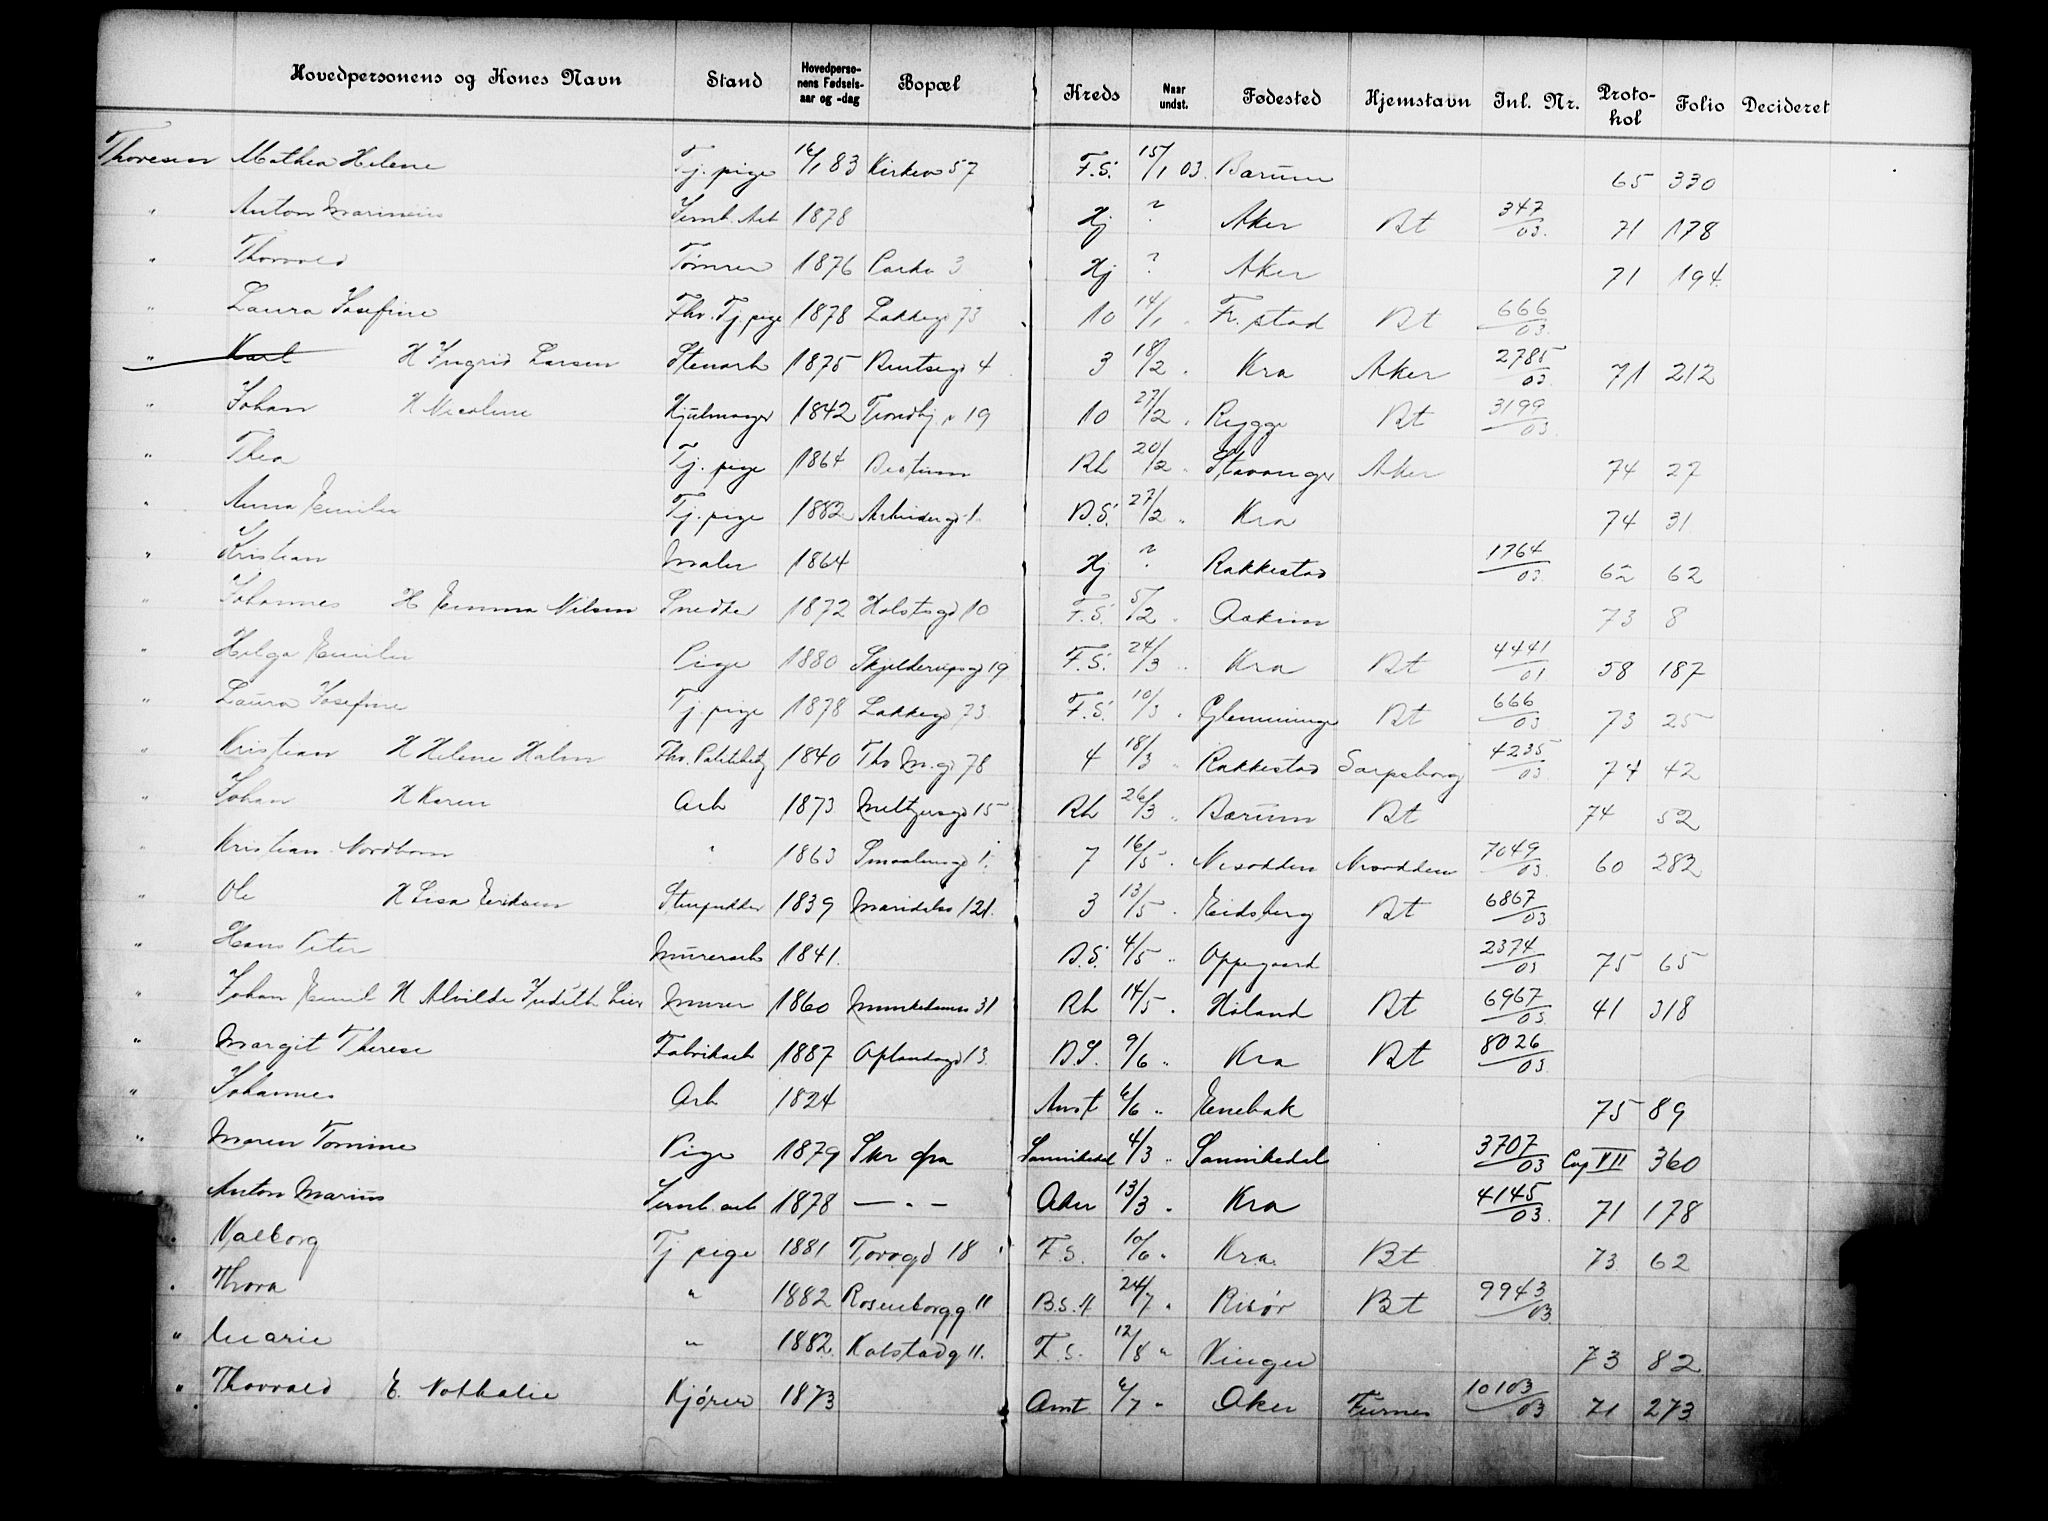 Hovedpersonens og Kones Navn Stand Hovedperso-nens Fødsels-aar og -dag Bopæl Kreds Naar undst. Fødested Hjemstavn Inl. Nr. Proto-kol Folio Decideret
Thoresen Mathea Helene Tj. pige 16/1 83 Kirkev 57 F.S. 15/1 03. Bærum 65 330
" Anton Marinius Jernb. Arb 1878 Hj ? Aker Bt 347/03. 71 178
" Thorvald Tømrer 1876 Parkv 3 Hj ? Aker 71 194.
" Laura Josefine Fhv. Tj. pige 1878 Lakkegd 73 10 14/1 " Fr. stad Bt 666/03.
" Karl H Ingrid Larsen Stenarb 1875 Bentsegd 4 3 18/2 " Kra Aker 2785/03. 71 212
" Johan H Nicoline Hjulmager 1842 Trondhj v 19 10 27/2 " Rygge Bt 3199/03.
" Thea Tj. pige 1864 Bestum Rh 20/2 " Stavanger Aker 74 27
" Anna Emilie Tj. pige 1882 Arbeidergd 1 B.S. 27/2 " Kra 74 31.
" Kristian Maler 1864 Hj ? Rakkestad 1764/03. 62 62
" Johannes H Emma Nilsen Snedker 1872 Holstsgd 10 F.S. 5/2 " Askim 73 8
" Helga Emilie Pige 1880 Skjelderupsgd 19 F.S. 24/3 " Kra Bt 4441/01 58 187
" Laura Josefine Tj. pige 1878 Lakkegd 73 F.S. 10/3 " Glemminge Bt 666/03 73 25
" Kristian H Helene Holm Fhv. Politibetj 1840 Thv M. gd 78 4 18/3 " Rakkestad Sarpsborg 4235/03 74 42
" Johan H Karen Arb 1873 Meltzersgd 15 Rh 26/3 " Bærum Bt 74 52
" Kristian Nordbom " 1863 Smaalensgd 1. 7 16/5 " Nesodden Nesodden 7049/03. 60 282
" Ole H Lisa Eriksen Stenpukker 1839 Maridalsv 121. 3 13/5 " Eidsberg Bt 6867/03
" Hans Peter Murerarb 1841. B.S. 4/5 " Oppegaard 2374/03 75 65
" Johan Emil H Alvilde Judith Lier Murer 1860 Munkedamsv 31 Rh 14/5 " Høland Bt 6967/03. 41 318
" Margit Therese Fabrikarb 1887 Oplandsgd 13. B.S. 9/6 " Kra Bt 8026/03
" Johannes Arb 1824 Amt 6/6 " Enebak 75 89
" Maren Tomine Pige 1879 Skr fra Sannikedal 4/3 " Sannikedal 3707/03 Cop VII 360
" Anton Marius Jernb. arb 1878 — " — Aker 13/3 " Kra 4145/03. 71 178
" Valborg Tj pige 1881 Torvgd 18 F.S. 10/6 " Kra. Bt 73 62
" Thora " 1882 Rosenborgg 11 B.S. A 24/7 " Risør Bt 9943/03.
" Marie " 1882. Kalstadg 11. F.S. 12/8 " Vinger 73 82
" Thorvald E. Nathalie Kjører 1873 Amt 6/7 " Aker Furnes 10103/03 71 273